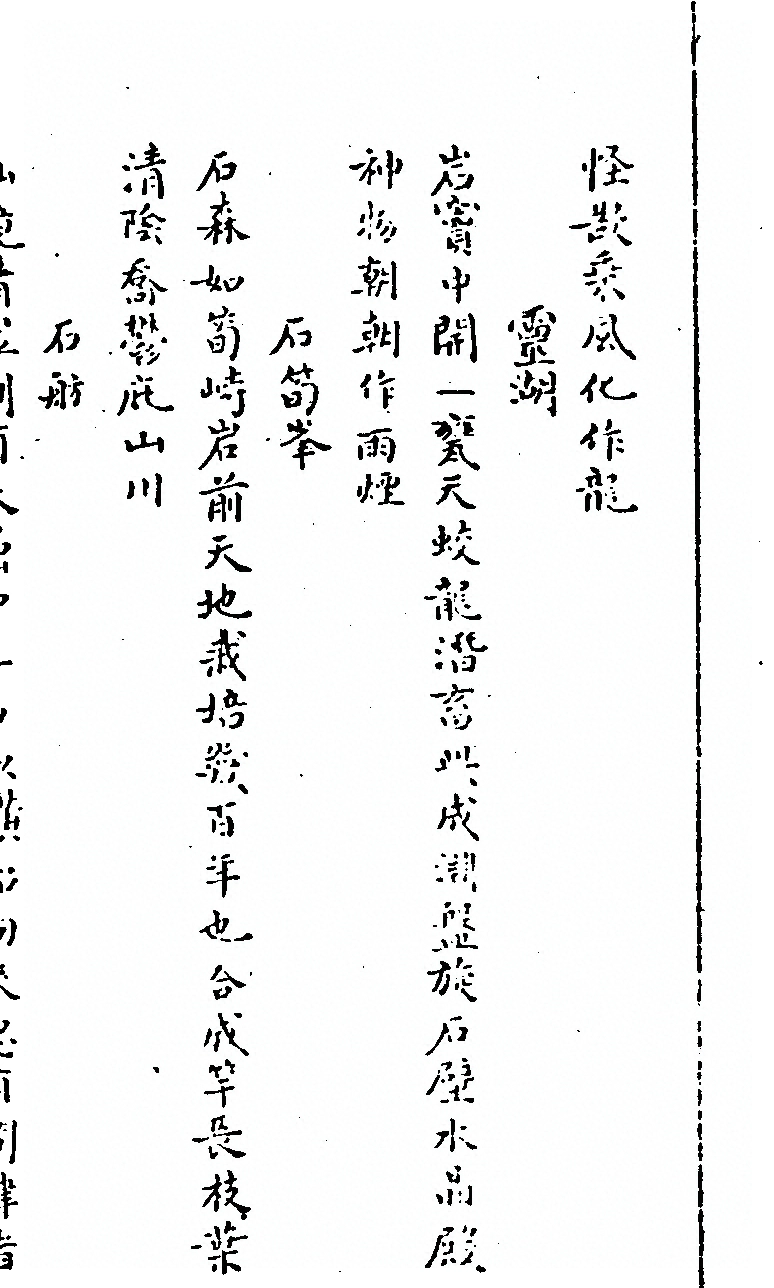 怪欲乘風化作龍
靈湖
岩竇中開一甕天蛟龍潛蓄此成淵盤旋石壁水晶殿
神物朝朝作雨煙
石筍峯
石森如筍峙岩前天地栽培幾百年也合成竿長枝葉
清陰喬鬱庇山川
石舫